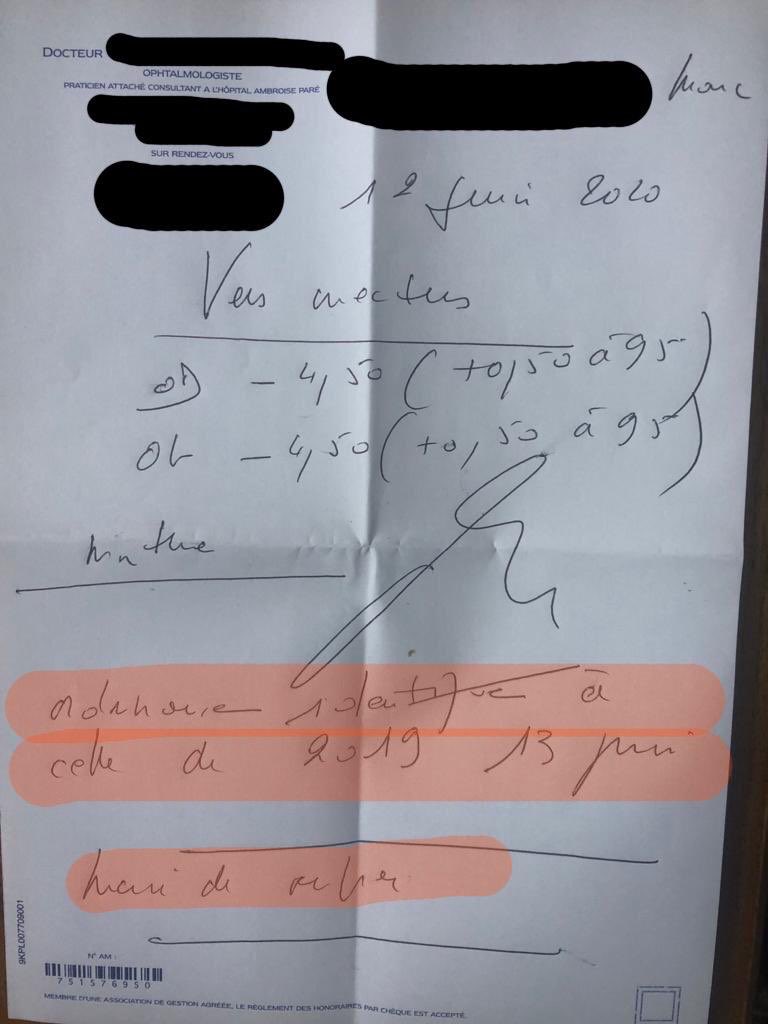 DOCTEUR
OPHTALMOLOGISTE
PRATICIEN ATTACHÉ CONSULTANT A L'HÔPITAL AMBROISE PARÉ
SUR RENDEZ-VOUS
Marc
12 Juin 2020
Verres
OD - 4,50 (+0,50 à 95)
OG - 4,50 (+0,50 à 95)
ordonnance identique à
celle de 2019 13 juin
Merci de
9KPL007709001
N° AM :
751576950
MEMBRE D'UNE ASSOCIATION DE GESTION AGRÉÉE, LE RÈGLEMENT DES HONORAIRES PAR CHÈQUE EST ACCEPTÉ.